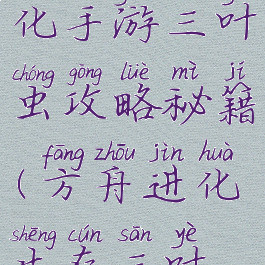 化手游三叶
chóng gōng lüè mì jí
虫攻略秘籍
fāng zhōu jìn huà
(方舟进化
shēng cún sān yè